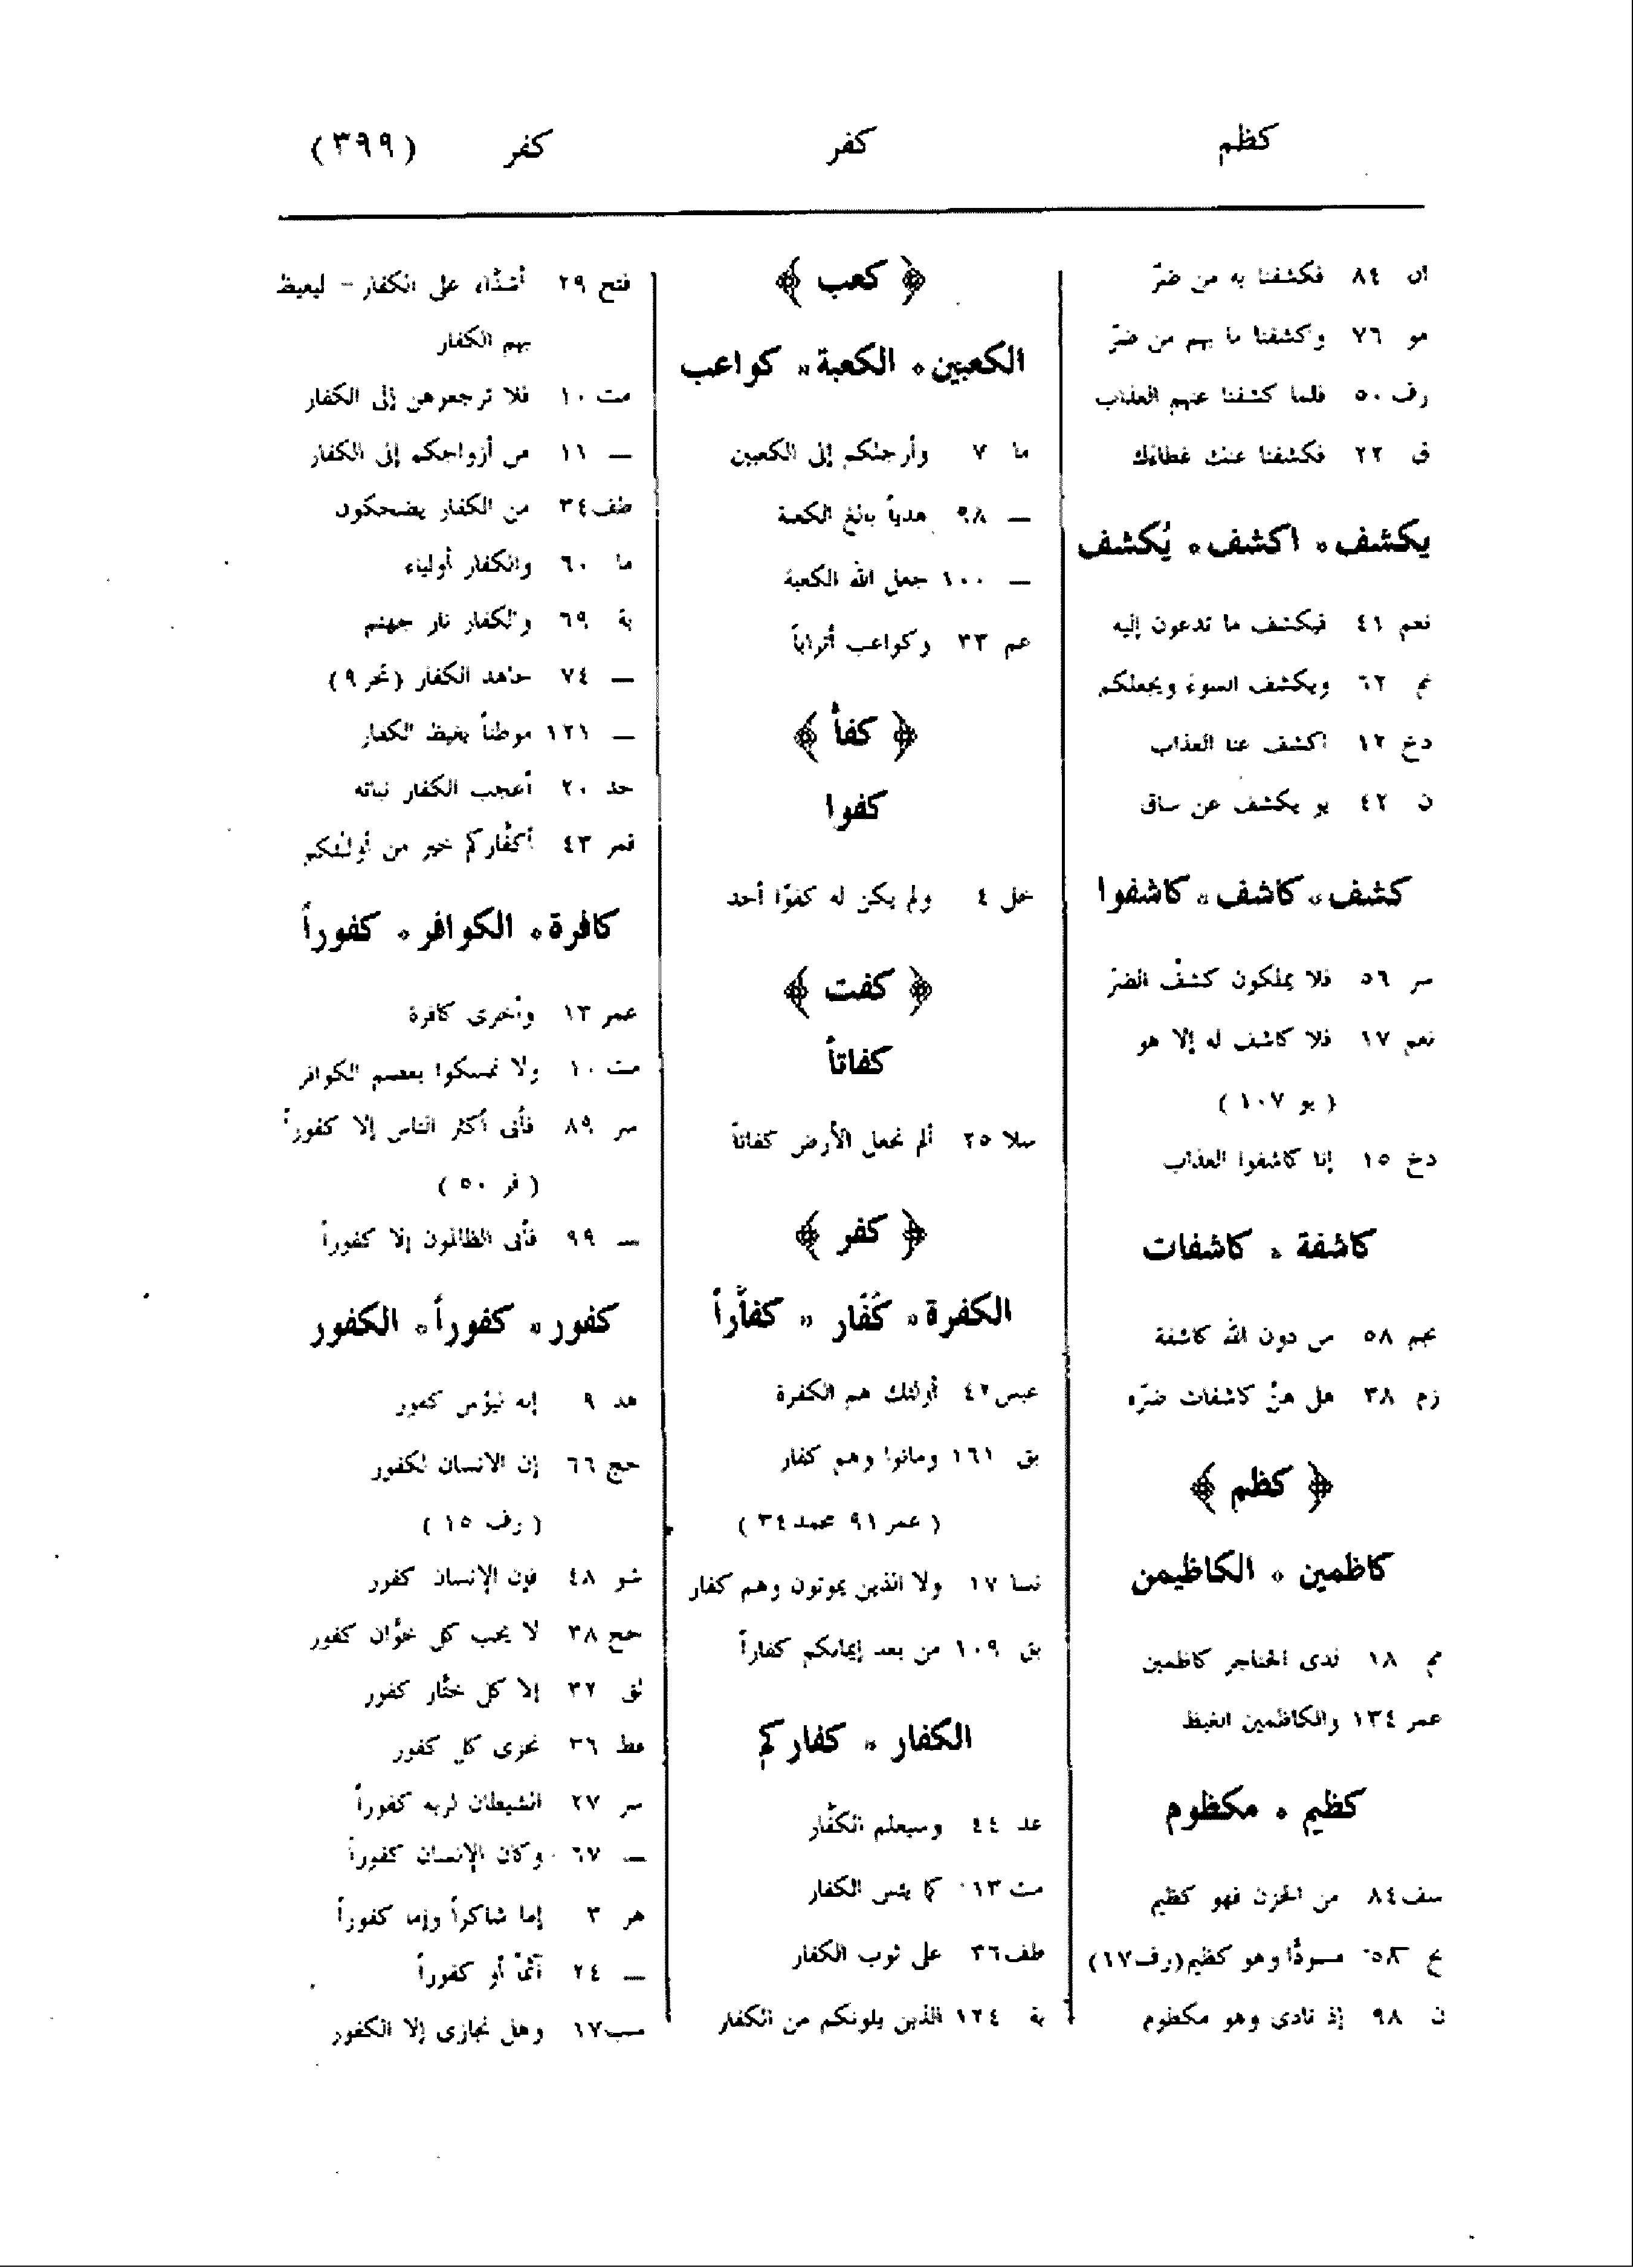 كظم
كفر
كفر (٣٩٩)
ان ٨٤ فكشفنا به من ضرّ
مو ٧٦ وكشفنا ما بهم من ضرّ
رف ٥٠ فلما كشفنا عنهم العذاب
ق ٢٢ فكشفنا عنك غطاءك
يكشف * اكشف * يُكشف
نعم ٤١ فيكشف ما تدعون إليه
نم ٦٢ ويكشف السوء ويجعلكم
دخ ١٢ اكشف عنا العذاب
ن ٤٢ يو يكشف عن ساق
كشف * كاشف * كاشفوا
سر ٥٦ فلا يملكون كشف الضرّ
نعم ١٧ فلا كاشف له إلا هو
( يو ١٠٧ )
دخ ١٥ إنا كاشفوا العذاب
كاشفة * كاشفات
نجم ٥٨ من دون الله كاشفة
زم ٣٨ هل هنّ كاشفات ضرّه
﴿ كظم ﴾
كاظمين * الكاظيمن
مم ١٨ لدى الحناجر كاظمين
عمر ١٣٤ والكاظمين الغيظ
كظيم * مكظوم
سف ٨٤ من الحزن فهو كظيم
نح ٥٨ مسودًّا وهو كظيم (رف ١٧)
ن ٩٨ إذ نادى وهو مكظوم
﴿ كعب ﴾
الكعبين * الكعبة * كواعب
ما ٧ وأرجلكم إلى الكعبين
ــ ٩٨ هدياً بالغ الكعبة
ــ ١٠٠ جعل الله الكعبة
عم ٣٣ وكواعب أتراباً
﴿ كفأ ﴾
كفوا
خل ٤ ولم يكن له كفوًا أحد
﴿ كفت ﴾
كفاتاً
سلا ٢٥ ألم نجعل الأرض كفاتاً
﴿ كفر ﴾
الكفرة * كُفّار * كفاّراً
عبس ٤٢ أولئك هم الكفرة
بق ١٦١ وماتوا وهم كفار
( عمر ٩١ محمد ٣٤ )
نسا ١٧ ولا الذين يموتون وهم كفار
بق ١٠٩ من بعد إيمانكم كفاراً
الكفار * كفاركم
عد ٤٤ وسيعلم الكفّار
مت ١٣ كما يئس الكفار
طف ٣٦ على ثوب الكفار
بة ١٢٤ الذين يلونكم من الكفار
فتح ٢٩ أشدّاء على الكفار - ليغيظ
بهم الكفار
مت ١٠ فلا ترجعوهن إلى الكفار
ــ ١١ من أزواجكم إلى الكفار
طف ٣٤ من الكفار يضحكون
ما ٦٠ والكفار أولياء
بة ٦٩ والكفار نار جهنم
ــ ٧٤ جاهد الكفار (نحر ٩)
ــ ١٢١ موطئاً يغيظ الكفار
حد ٢٠ أعجب الكفار نباته
قمر ٤٣ أكفّاركم خير من أولئكم
كافرة * الكوافر * كفوراً
عمر ١٣ وأخرى كافرة
مت ١٠ ولا تمسكوا بعصم الكوافر
سر ٨٩ فأبى أكثر الناس إلا كفوراً
( فر ٥٠ )
ــ ٩٩ فأبى الظالمون إلا كفوراً
كفور * كفوراً * الكفور
هد ٩ إنه ليؤس كفور
حج ٦٦ إن الانسان لكفور
( رف ١٥ )
شو ٤٨ فإن الإنسان كفور
حج ٣٨ لا يحب كل خوّان كفور
لق ٣٢ إلا كل ختّار كفور
فط ٣٦ نجزى كل كفور
سر ٢٧ الشيطان لربه كفوراً
ــ ٦٧ وكان الإنسان كفوراً
هر ٣ إما شاكراً وإما كفوراً
ــ ٢٤ آثماً أو كفوراً
سب ١٧ وهل نجازى إلا الكفور